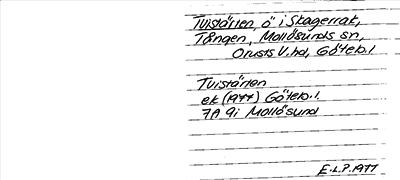 Tvistärten, ö i Skagerrak,
Tången, Mollösunds sn,
Orusts V. hd, Göteb. l
Tvistärten
ek (1977) Göteb. l.
7A 9i Mollösund
E.L.P. 1977